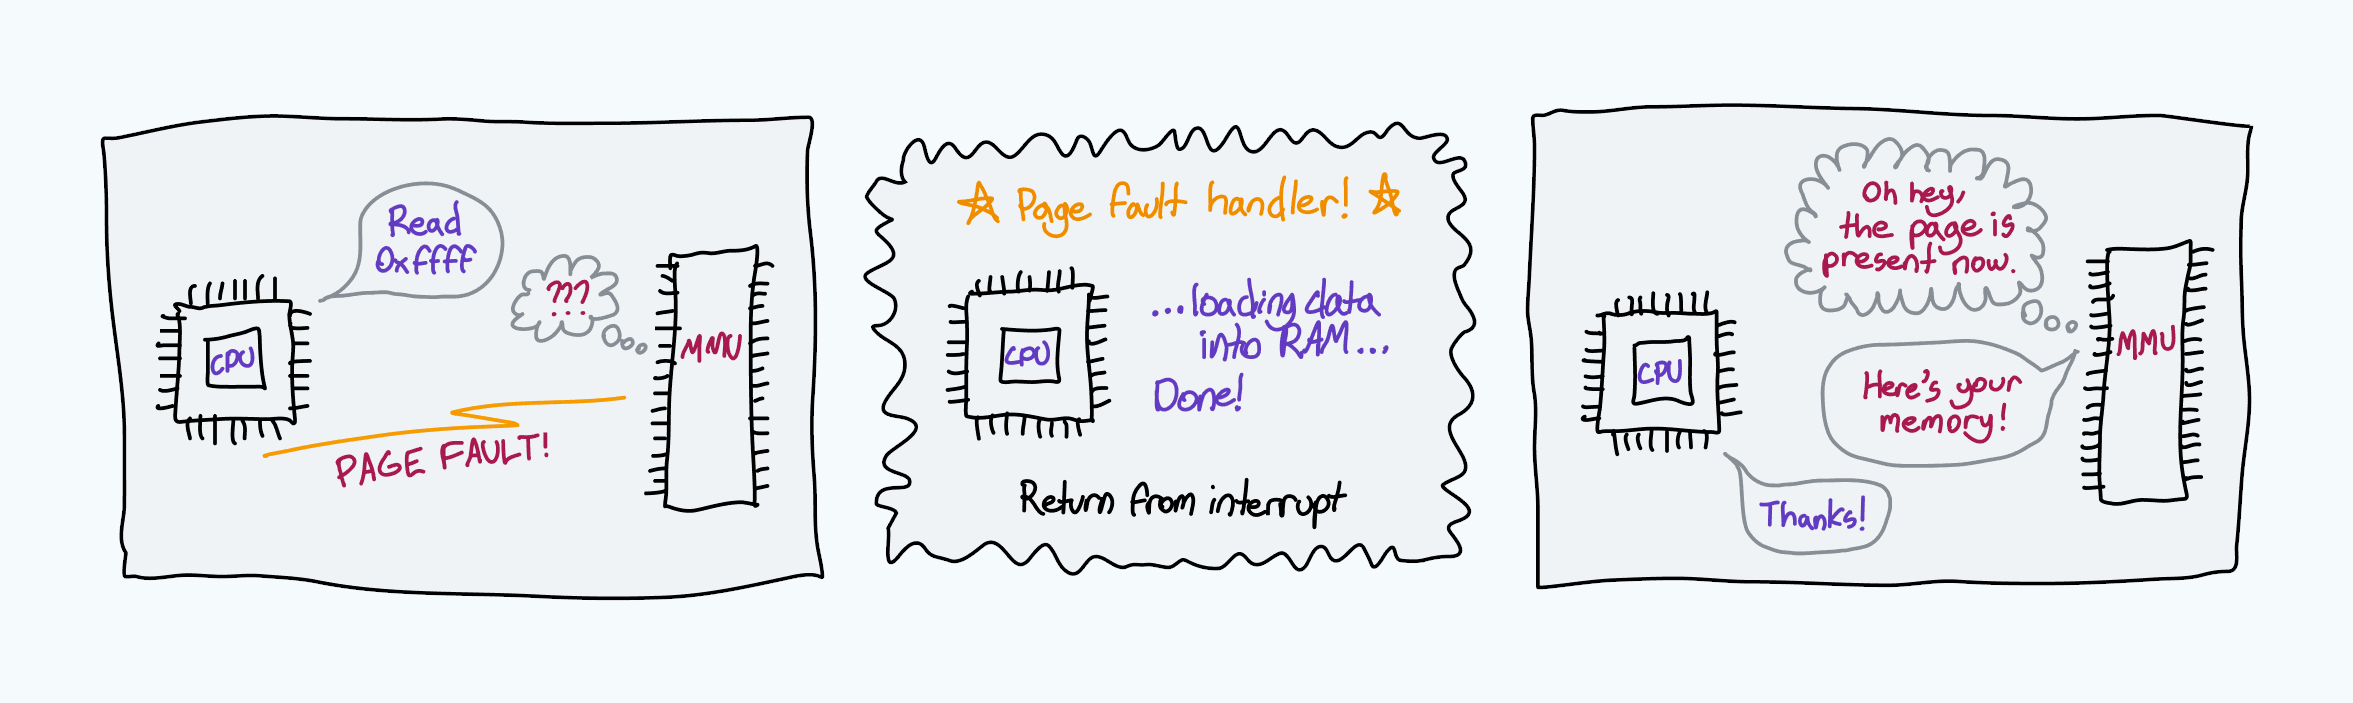 Read
0xffff
CPU
???
MMU
PAGE FAULT!
☆ Page fault handler! ☆
CPU
...loading data
into RAM...
Done!
Return from interrupt
Oh hey,
the page is
present now.
MMU
CPU
Here's your
memory!
Thanks!